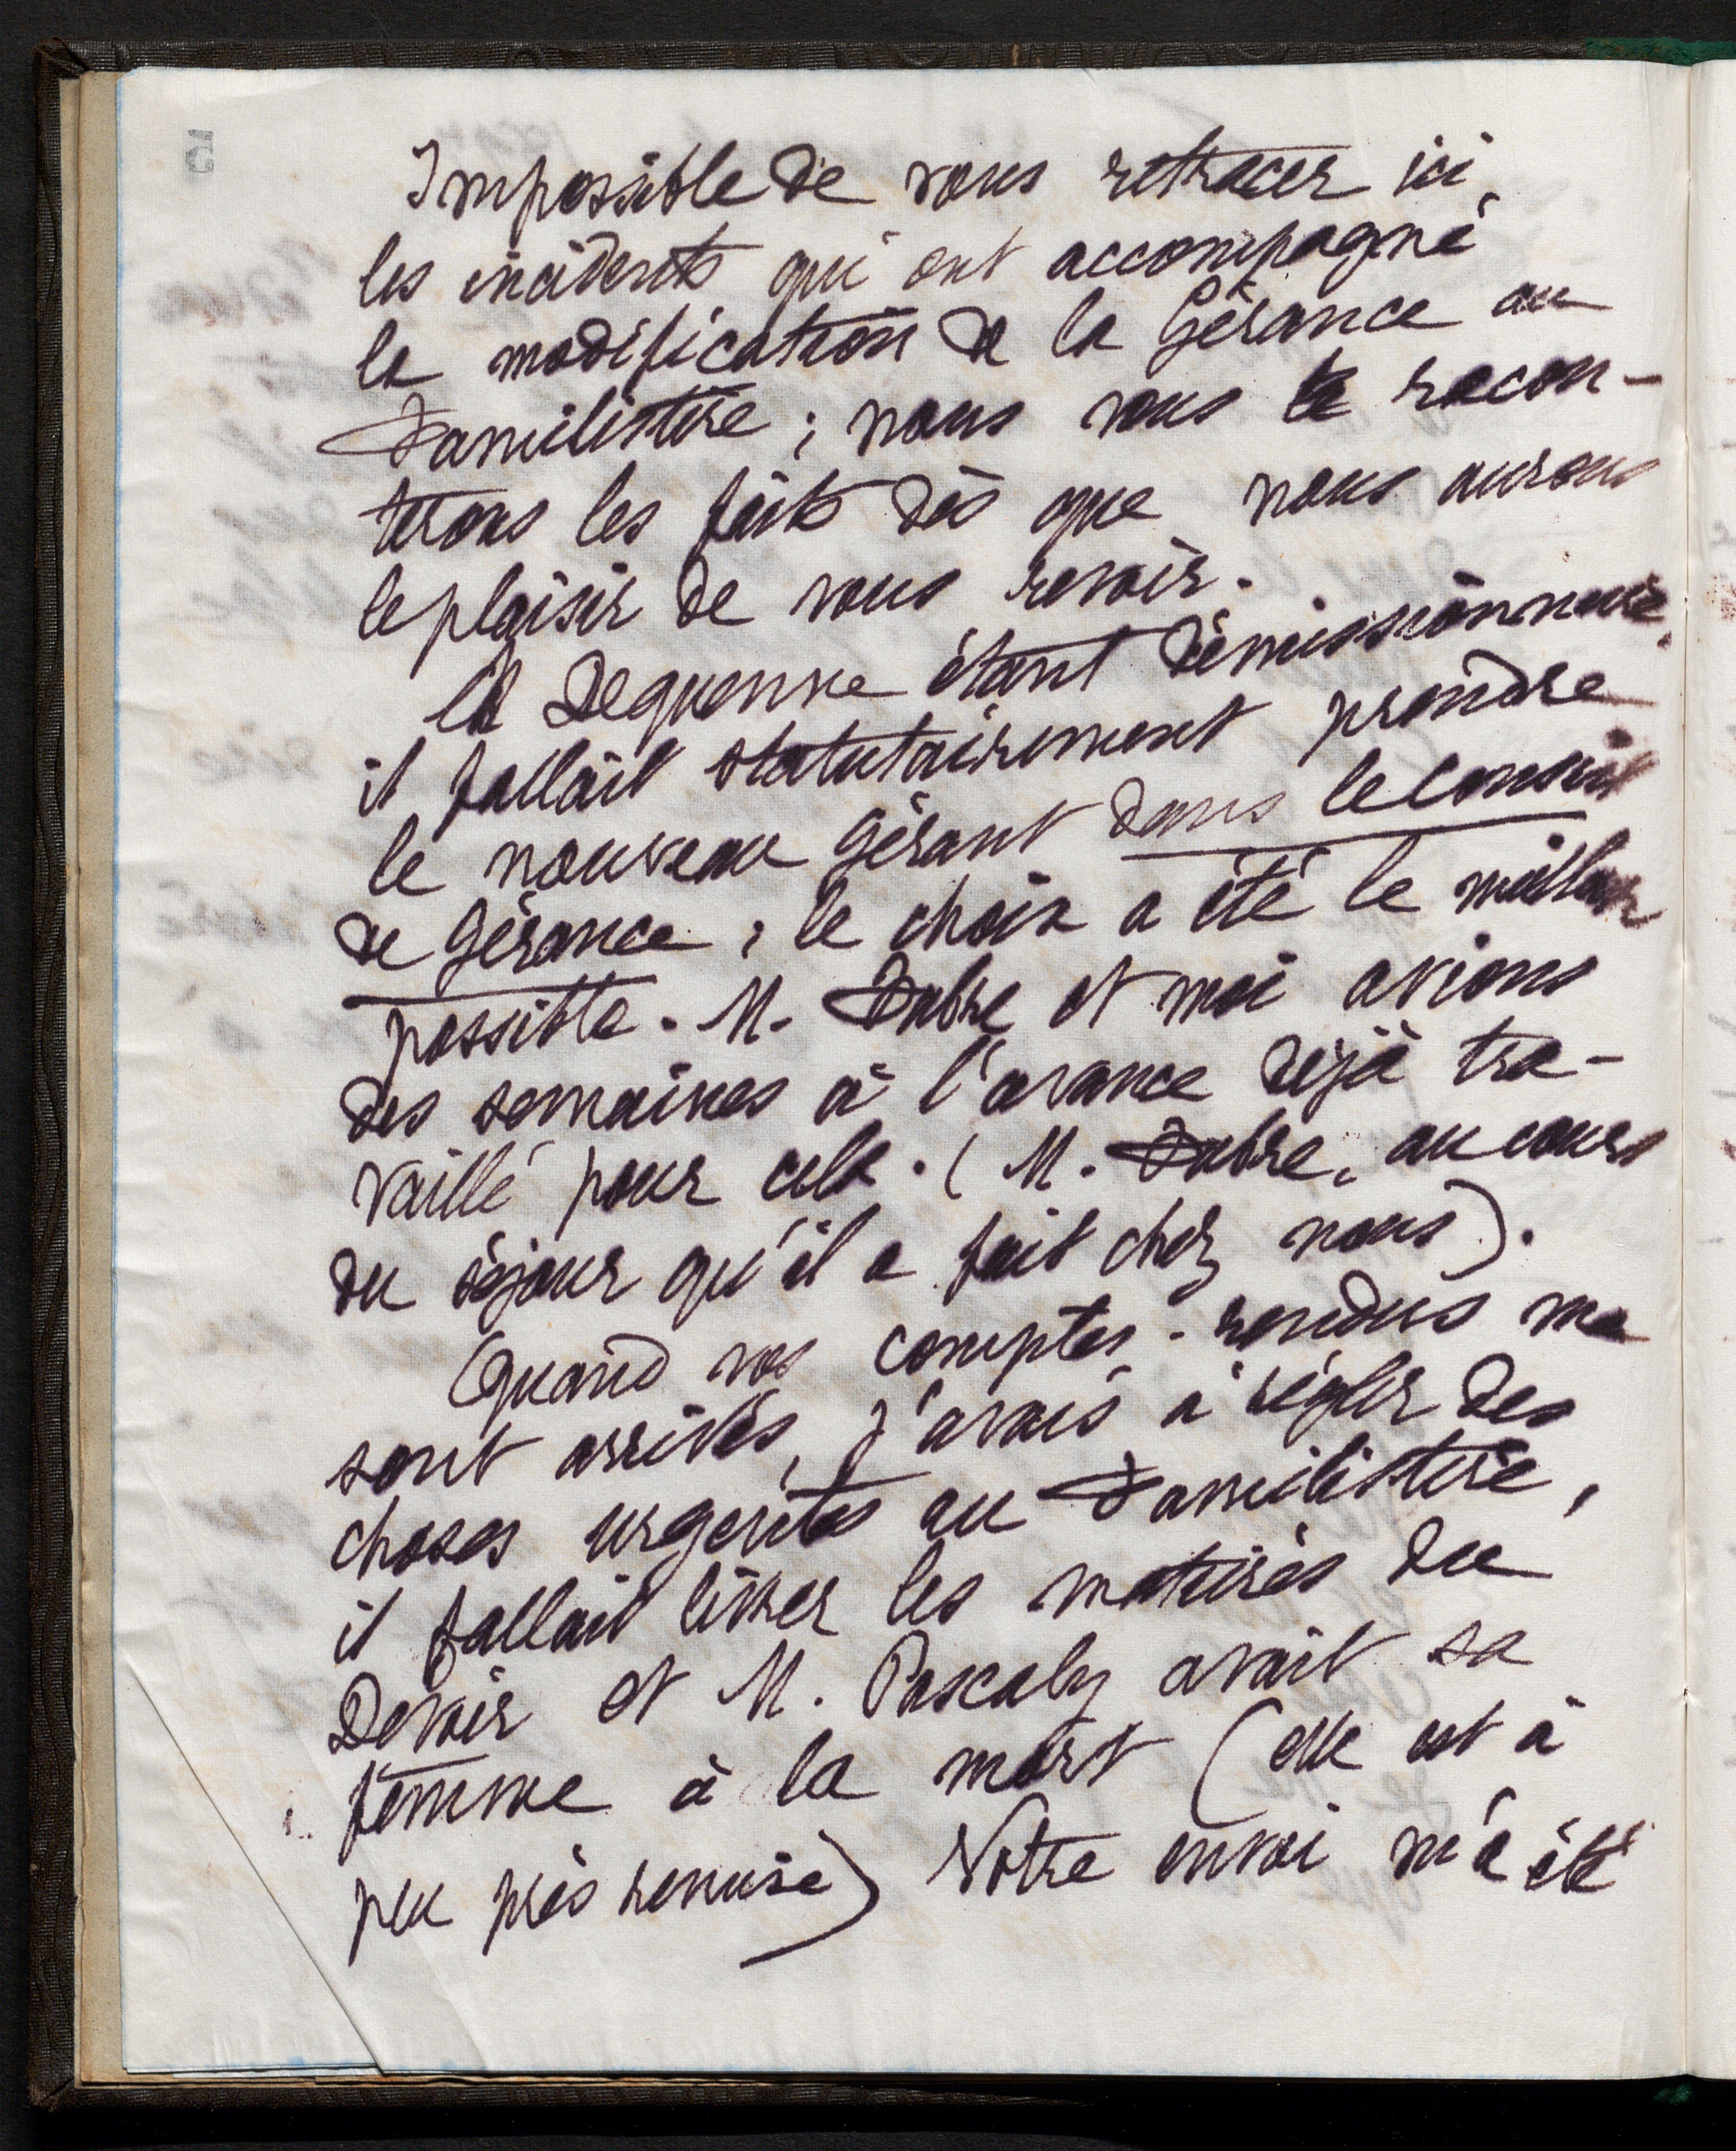 Impossible de vous retracer ici
les incidents qui ont accompagné
la modification de la Gérance au
Familistère ; nous vous le racon-
terons les faits dès que nous aurons
le plaisir de vous revoir.
M Dequenne étant démissionnaire
il fallait statutairement prendre
le nouveau Gérant dans le Conseil
de Gérance ; le choix a été le meilleur
possible. M. Fabre et moi avions
des semaines à l'avance déjà tra-
vaillé pour cela. (M. Fabre, au cours
du séjour qu'il a fait chez nous).
Quand vos comptes-rendus me
sont arrivés, j'avais à régler des
choses urgentes au Familistère,
il fallait livrer les matières du
Devoir et M. Pascaly avait sa
femme à la mort (elle est à
peu près remise) Votre envoi m'a été
5